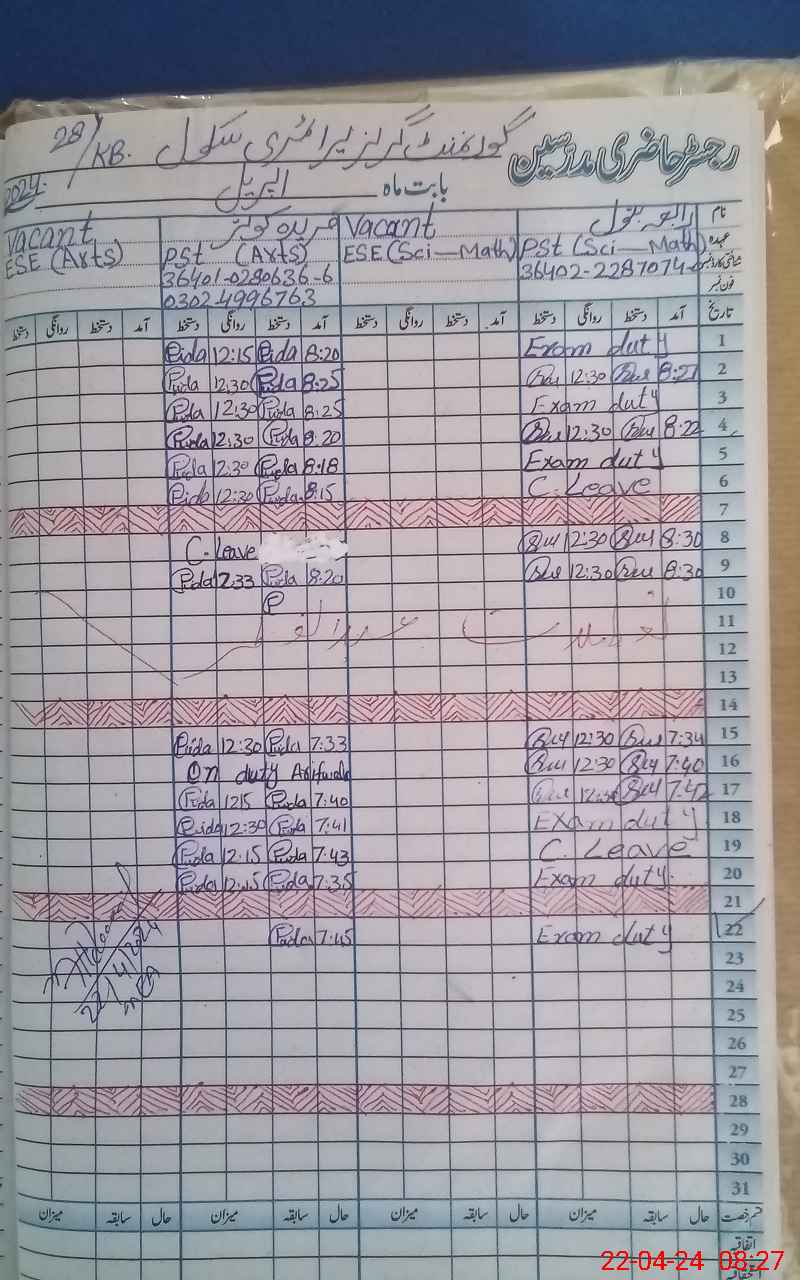 رجسٹر حاضری مدرسین
گورنمنٹ گرلز پرائمری سکول 28/KB.
بابت ماہ اپریل 2024
نام رابعہ بتول Vacant فریدہ کوثر Vacant
عہدہ PSt (Sci—Math) ESE (Sci—Math) PSt (Arts) ESE (Arts)
36402-2287074- 36401-0280636-6
فون نمبر 03024996763
تاریخ آمد دستخط روانگی دستخط آمد دستخط روانگی دستخط آمد دستخط روانگی دستخط آمد دستخط روانگی دستخط
1 Exam duty 8:20 Pida 12:15 Pida
2 8:21 12:30 8:25 Pida 12:30 Pida
3 Exam duty 8:25 Pida 12:30 Pida
4 8:22 12:30 8:20 Pida 12:30 Pida
5 Exam duty 8:18 Pida 12:30 Pida
6 C. Leave 8:15 Pida 12:30 Pida
7
8 8:30 12:30 C. Leave
9 8:30 12:30 8:20 Pida 12:33 Pida
10 P
11 تعطیلات عیدالفطر
12
13
14
15 7:34 12:30 7:33 Pida 12:30 Pida
16 7:40 12:30 On duty Arifwala
17 7:42 12:30 7:40 Pida 1215 Pida
18 Exam duty 7:41 Pida 12:30 Pida
19 C. Leave 7:43 Pida 12.15 Pida
20 Exam duty. 7:35 Pida 12:15 Pida
21
22 Exam duty 7:45 Pida
23
24
25
26
27
28
29
30
31
22/4/2024
MEA
قسم رخصت حال سابقہ میزان حال سابقہ میزان حال سابقہ میزان حال سابقہ میزان
اتفاقیہ
22-04-24 08:27